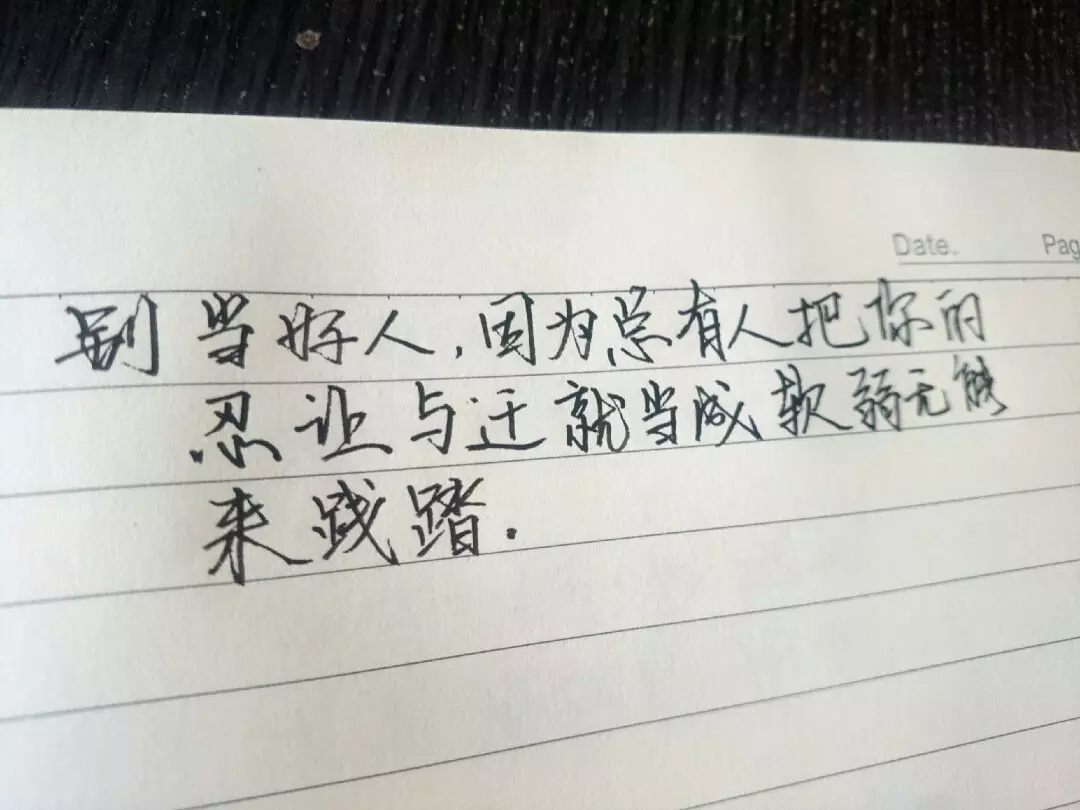 Date.
Pag
别当好人,因为总有人把你的
忍让与迁就当成软弱无能
来践踏.